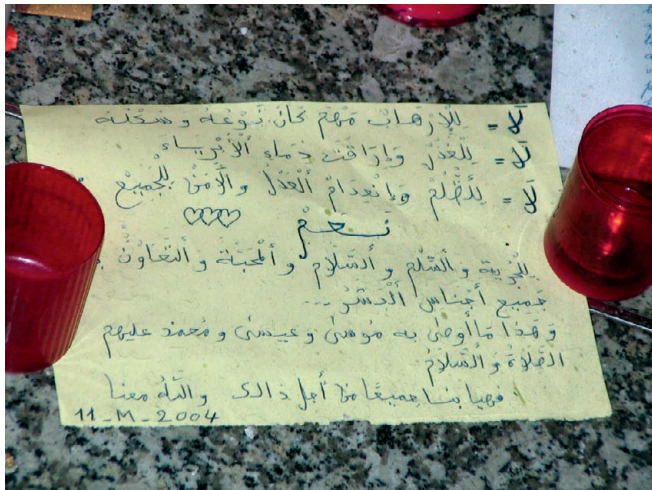 ألا = للإرهاب مهم كان نوعه و شكله
ألا = للغدر وإراقت دماء الأبرياء
ألا = للظلم وإنعدام العدل والأمن للجميع
نعم
للحرية و السلم و السلام و المحبة و التعاون
جميع أجناس البشر ...
و هذا ما أوصى به موسى و عيسى و محمد عليهم
الصلاة و السلام
فهيا بنا جميعا من أجل ذالك والله معنا
11-M-2004